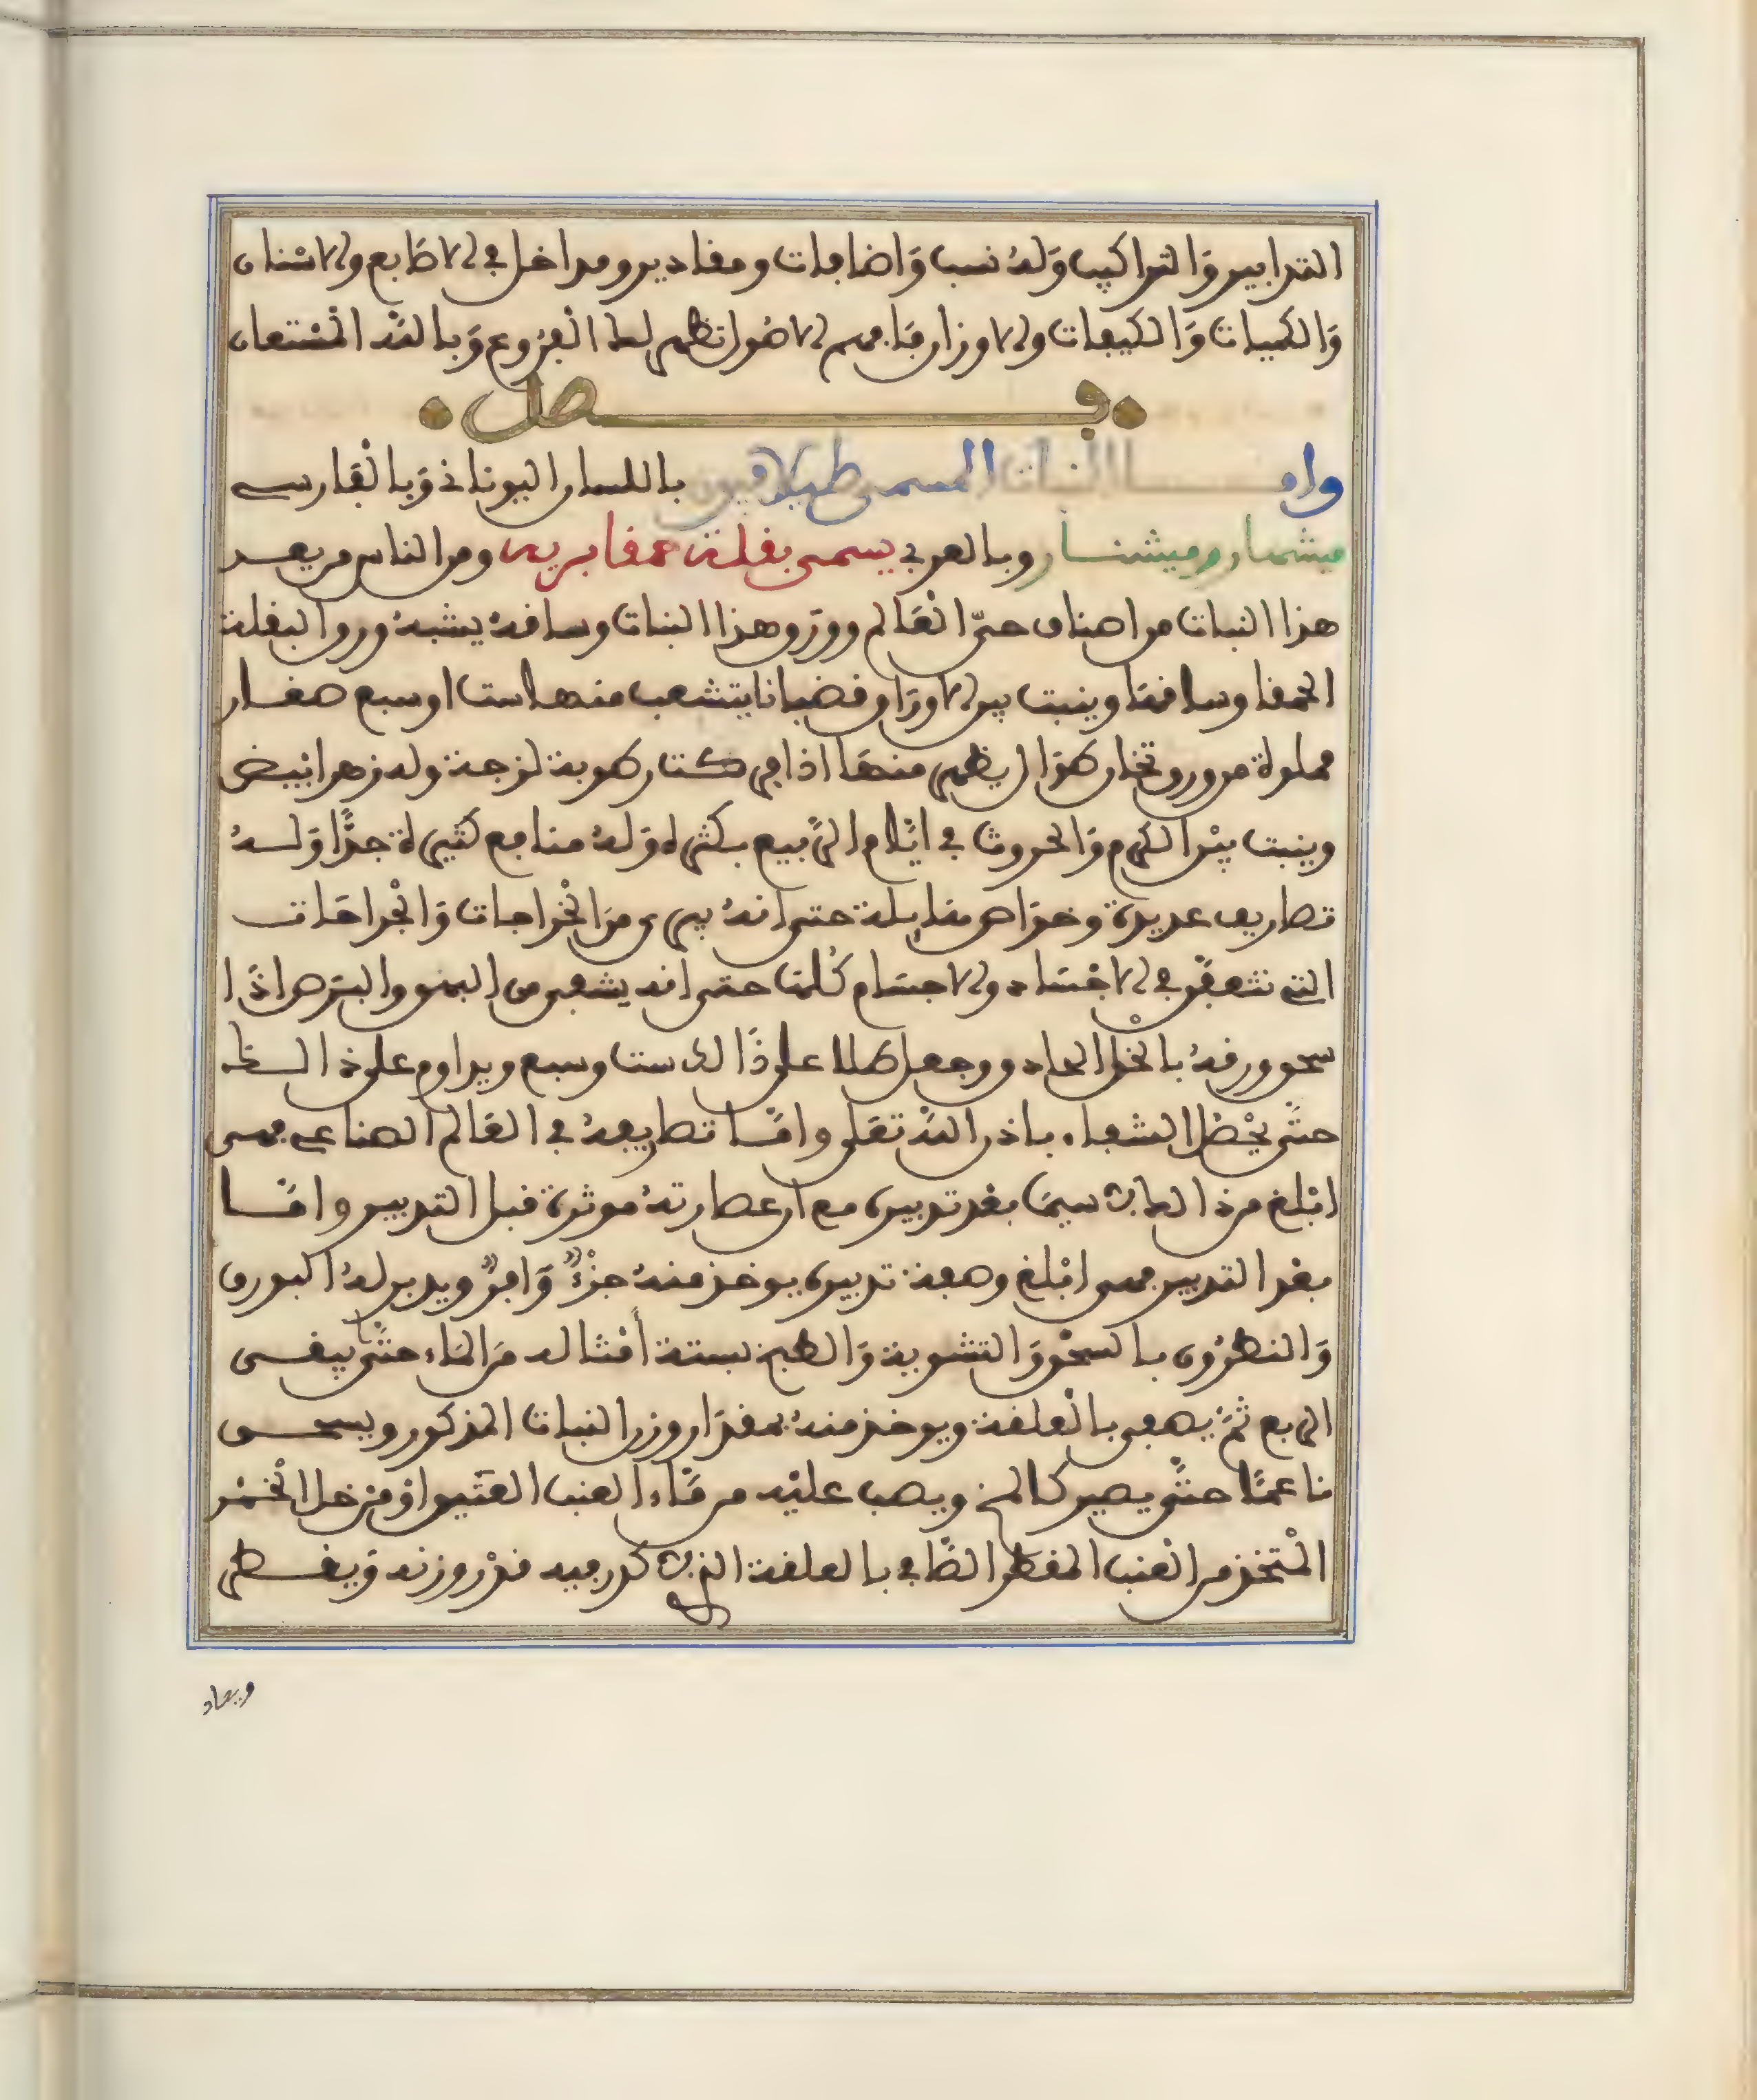 التدابير وَالتراكيب وَلهُ نسب وَاضافات ومقادير ومداخل في الاصَابع والاسْنان
وَالكميات وَالكيفيات والاوزان فافهم الاصُول تظهر لك الفرُوع وَبالله المُسْتعان
فصل
وامـــا النبات المسمى طيلافيون باللسان اليوناني وَبالفَارسي
ميشمار وميشنار وبالعربي يسمى بقلة حمقا برية ومن الناس من يعد
هذا النبات من اصناف حيّ العَالم وورَق هذا النبات وساقهُ يشبهُ ورق البقلة
الحمقا وساقهَا وينبت بين الاورَاق قضبانا يتشعب منها ست او سبع صغار
مملوة من ورق ثخان رطوبة لزجة وله زهر ابيض
وينبت بيْن الكرم وَالحروث في ايَّام الرَّبيع بكثرة وَلهُ منافع كثيرة جدًّا وَلـهُ
تصاريف عديدة وخوَاص مقابلة حتى انهُ يبرى منَ الخْراجات وَالجْراحَات
التي تتعفّن في الاجْسَاد والاجسَام كُلهَا حتى انه يشفى من البهق والبرَص اذَا
سحق ورقهُ بالخل الحاد وجعل طلا على ذَالك ست وسبع ويداوم على ذالـك
حتَّى يحْصُل الشفاء باذن الله تعَلى وامَّـا تصاريفهُ في العَالم الصناعي فهـى
ابْلغ من ذالك لا سيمَا بعْد تدبيره مع ان عصارتهُ موثرة قبل التدبير وامَّـا
بعْد التدبير فهى ابْلغ وصفة تدبيره يوخذ منهُ جزْءٌ وَافرٌ ويدبر لهُ البورق
وَالنطرُون بالسحْق وَالتشوية وَالطبخ بستة أمْثاله منَ المَاء حتَّى يبقـى
الربع ثمَّ يصفى بالعلقة ويوخذ منهُ بمقدَار وزن النبات المذكور ويسحـق
ناعمًا حتَّى يصير كالمخ ويصب عليْه من مَّاء العنب العَتيق اوْ منْ خل الخمْر
المْتخذ من العنب المقطر الصَّافي بالعلقة الذي ذكر فيه قدْر وزنه وَيقـطر
ويعاد